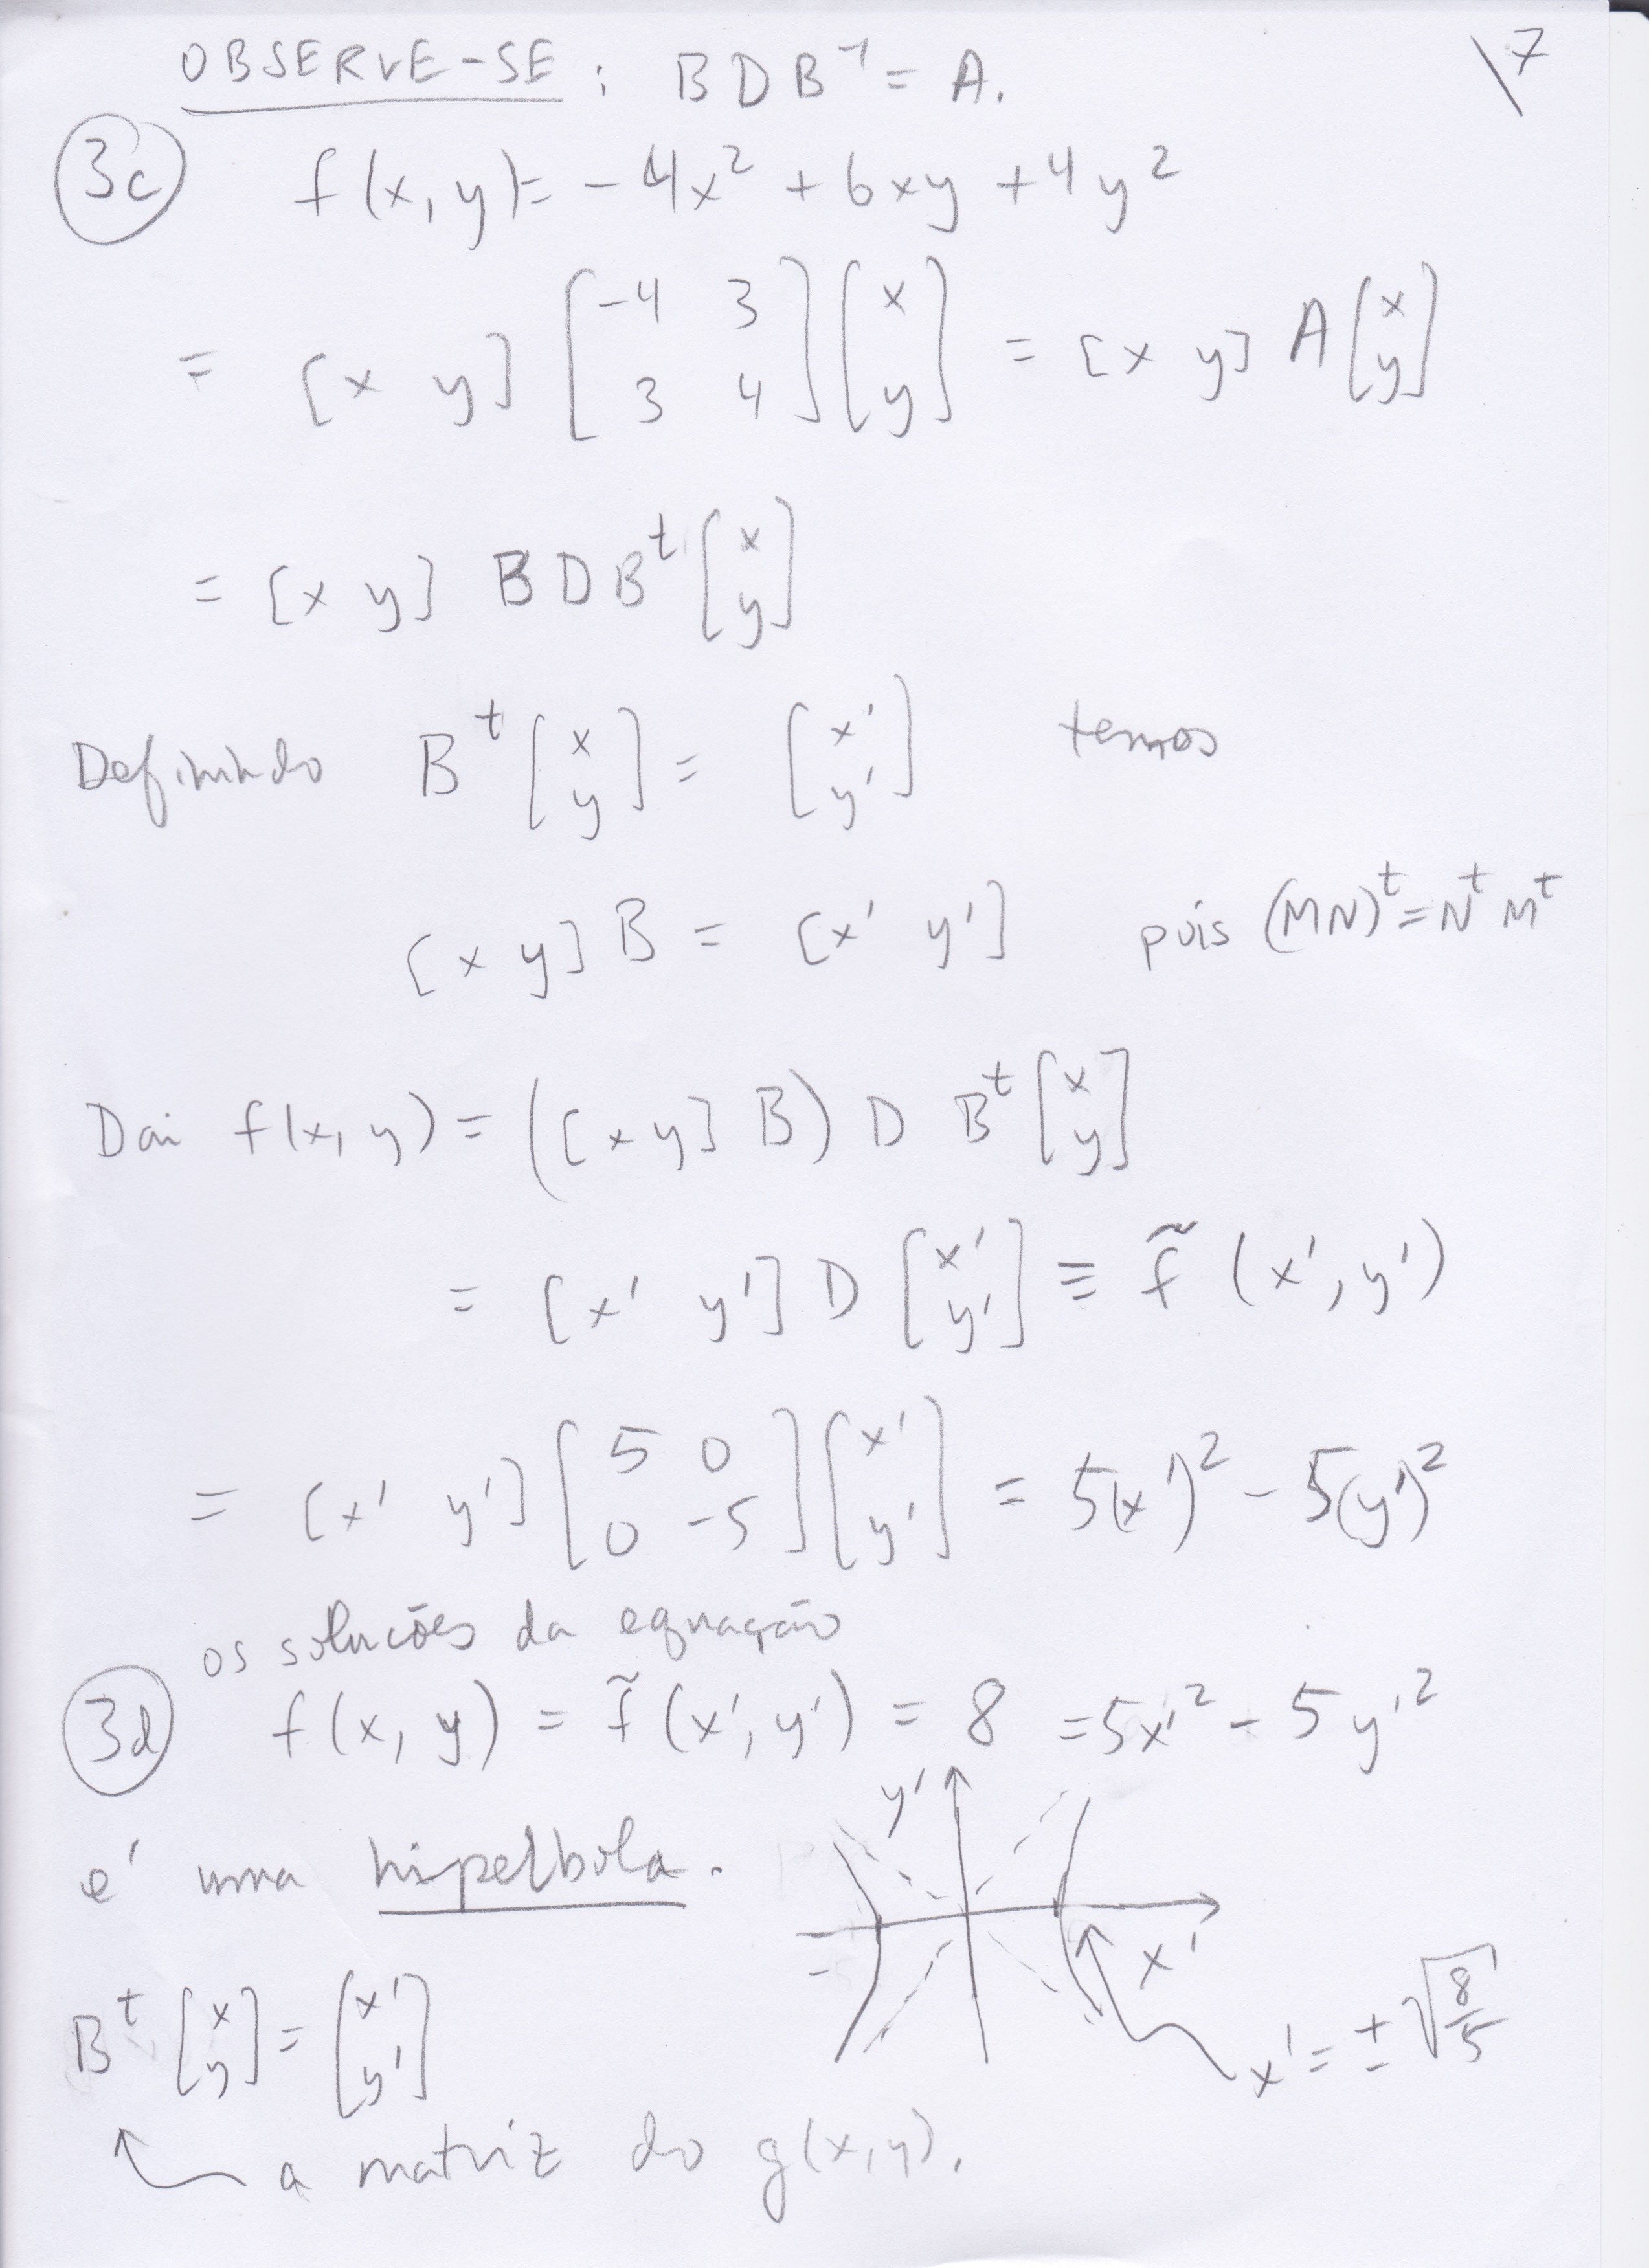 OBSERVE-SE : B D B⁻¹ = A.
\7
3c f(x, y) = -4x² + 6xy + 4y²
= [x y] [-4 3; 3 4] [x; y] = [x y] A [x; y]
= [x y] B D Bᵗ [x; y]
Definindo Bᵗ [x; y] = [x'; y'] temos
[x y] B = [x' y'] pois (MN)ᵗ = Nᵗ Mᵗ
Dai f(x, y) = ([x y] B) D Bᵗ [x; y]
= [x' y'] D [x'; y'] ≡ f̃ (x', y')
= [x' y'] [5 0; 0 -5] [x'; y'] = 5(x')² - 5(y')²
os soluções da equação
3d f(x, y) = f̃ (x', y') = 8 = 5x'² - 5y'²
é uma hipérbola.
y'
x'
x' = ± √(8/5)
Bᵗ [x; y] = [x'; y']
a matriz do g(x,y).